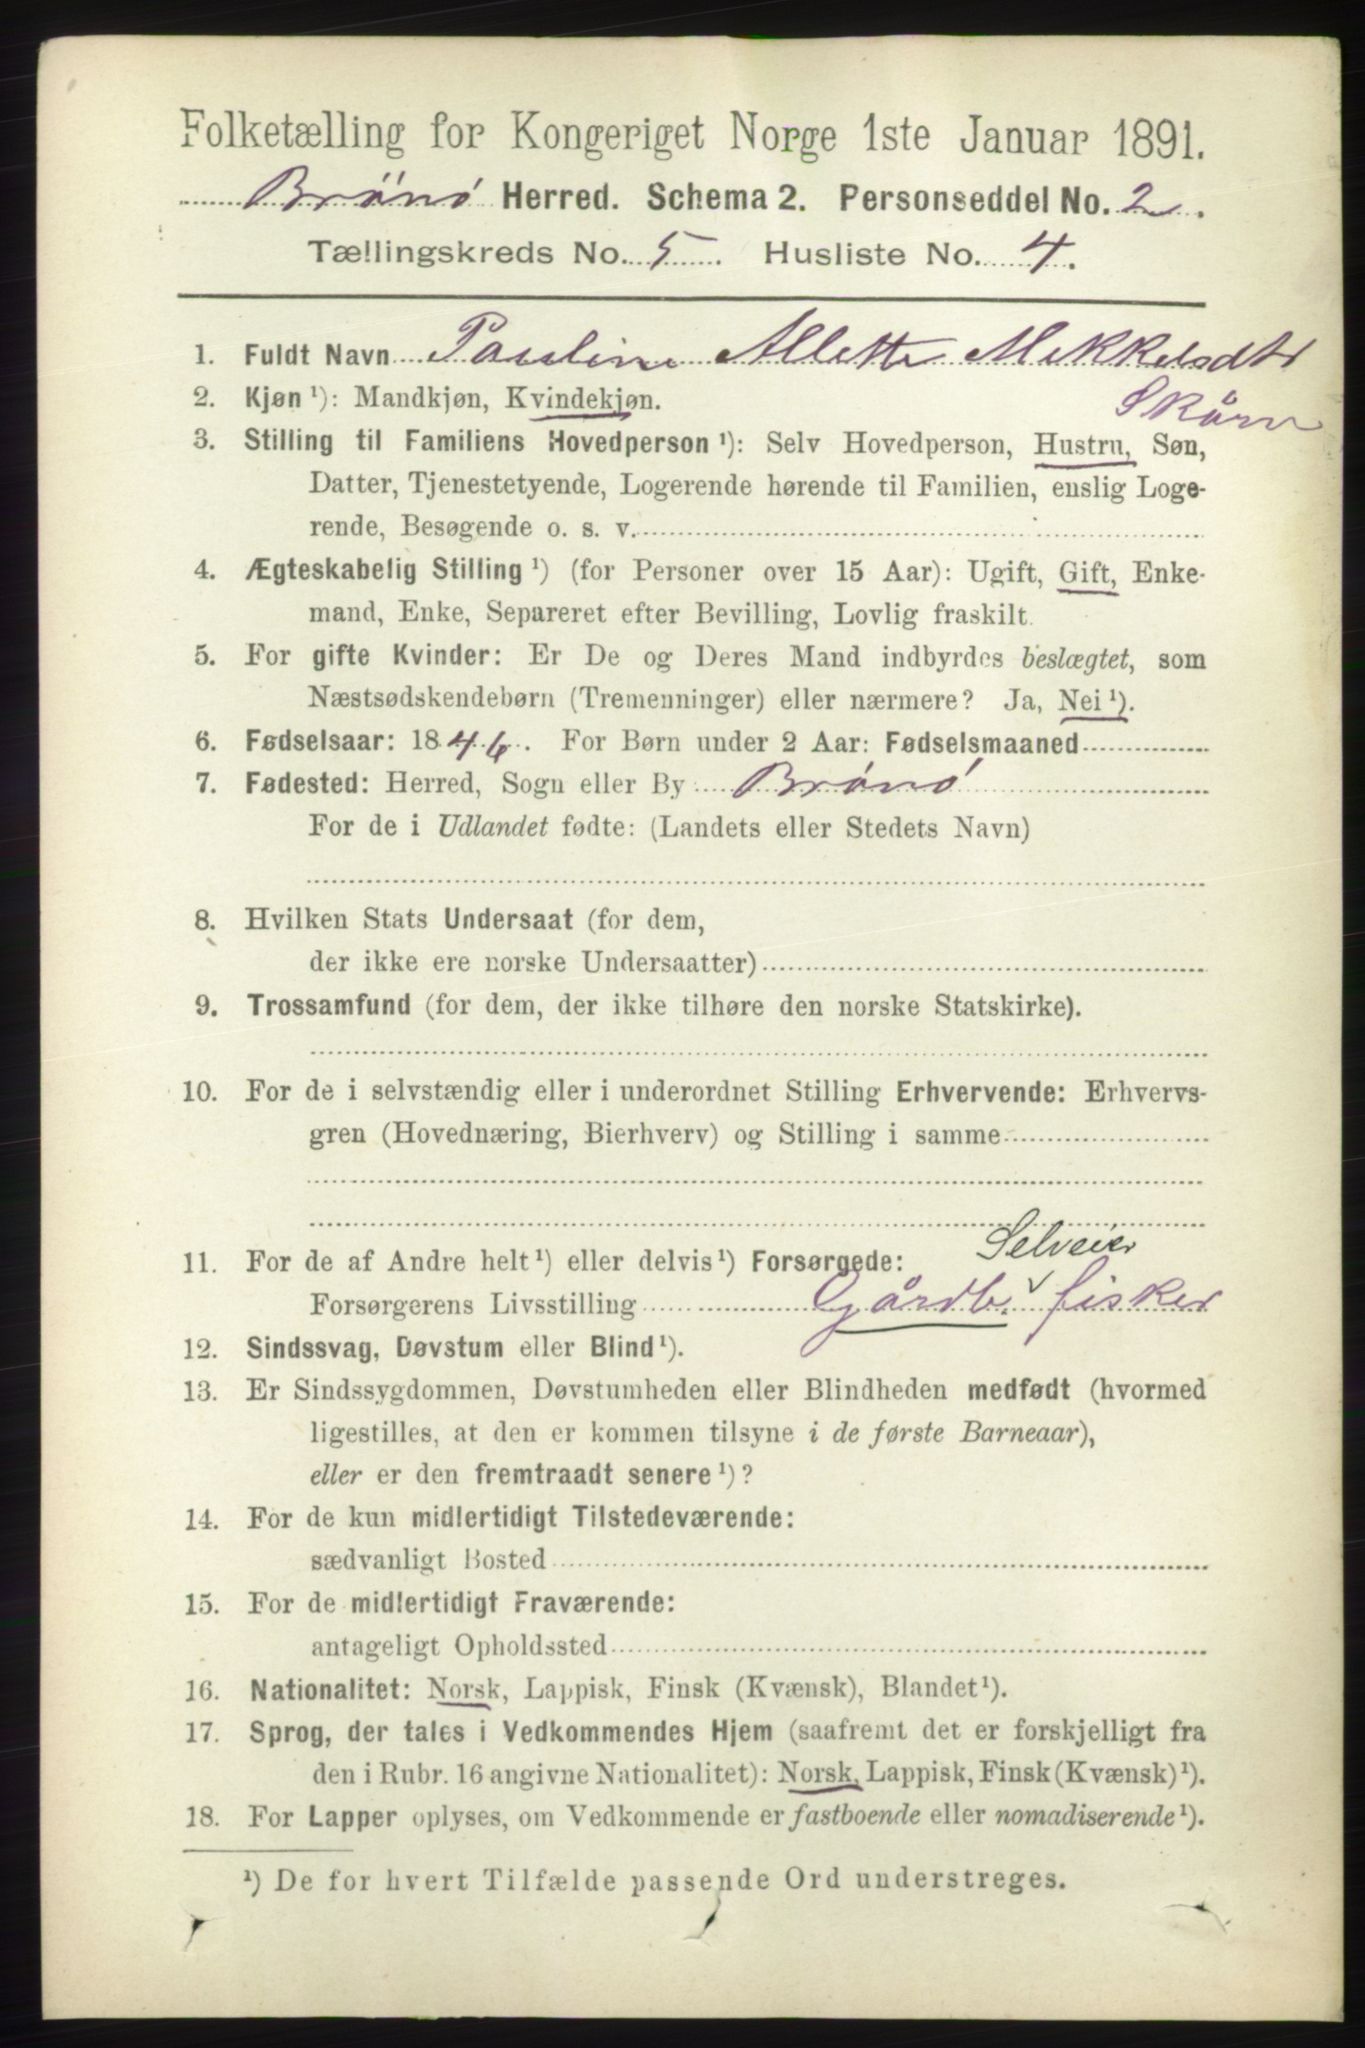 Folketælling for Kongeriget Norge 1ste Januar 1891.
Brönö Herred. Schema 2. Personseddel No. 2.
Tællingskreds No. 5. Husliste No. 4.
1. Fuldt Navn Pauline Allette Mekkelsdtr
2. Kjøn ¹): Mandkjøn, Kvindekjøn.
3. Stilling til Familiens Hovedperson ¹): Selv Hovedperson, Hustru, Søn,
Datter, Tjenestetyende, Logerende hørende til Familien, enslig Loge-
rende, Besøgende o. s. v.
4. Ægteskabelig Stilling ¹) (for Personer over 15 Aar): Ugift, Gift, Enke-
mand, Enke, Separeret efter Bevilling, Lovlig fraskilt.
5. For gifte Kvinder: Er De og Deres Mand indbyrdes beslægtet, som
Næstsødskendebørn (Tremenninger) eller nærmere? Ja, Nei ¹).
6. Fødselsaar: 1846. For Børn under 2 Aar: Fødselsmaaned
7. Fødested: Herred, Sogn eller By Brönö
For de i Udlandet fødte: (Landets eller Stedets Navn)
8. Hvilken Stats Undersaat (for dem,
der ikke ere norske Undersaatter)
9. Trossamfund (for dem, der ikke tilhøre den norske Statskirke).
10. For de i selvstændig eller i underordnet Stilling Erhvervende: Erhvervs-
gren (Hovednæring, Bierhverv) og Stilling i samme
11. For de af Andre helt ¹) eller delvis ¹) Forsørgede: Selveier
Forsørgerens Livsstilling Gårdb. fisker
12. Sindssvag, Døvstum eller Blind ¹).
13. Er Sindssygdommen, Døvstumheden eller Blindheden medfødt (hvormed
ligestilles, at den er kommen tilsyne i de første Barneaar),
eller er den fremtraadt senere ¹)?
14. For de kun midlertidigt Tilstedeværende:
sædvanligt Bosted
15. For de midlertidigt Fraværende:
antageligt Opholdssted
16. Nationalitet: Norsk, Lappisk, Finsk (Kvænsk), Blandet ¹).
17. Sprog, der tales i Vedkommendes Hjem (saafremt det er forskjelligt fra
den i Rubr. 16 angivne Nationalitet): Norsk, Lappisk, Finsk (Kvænsk) ¹).
18. For Lapper oplyses, om Vedkommende er fastboende eller nomadiserende ¹).
¹) De for hvert Tilfælde passende Ord understreges.